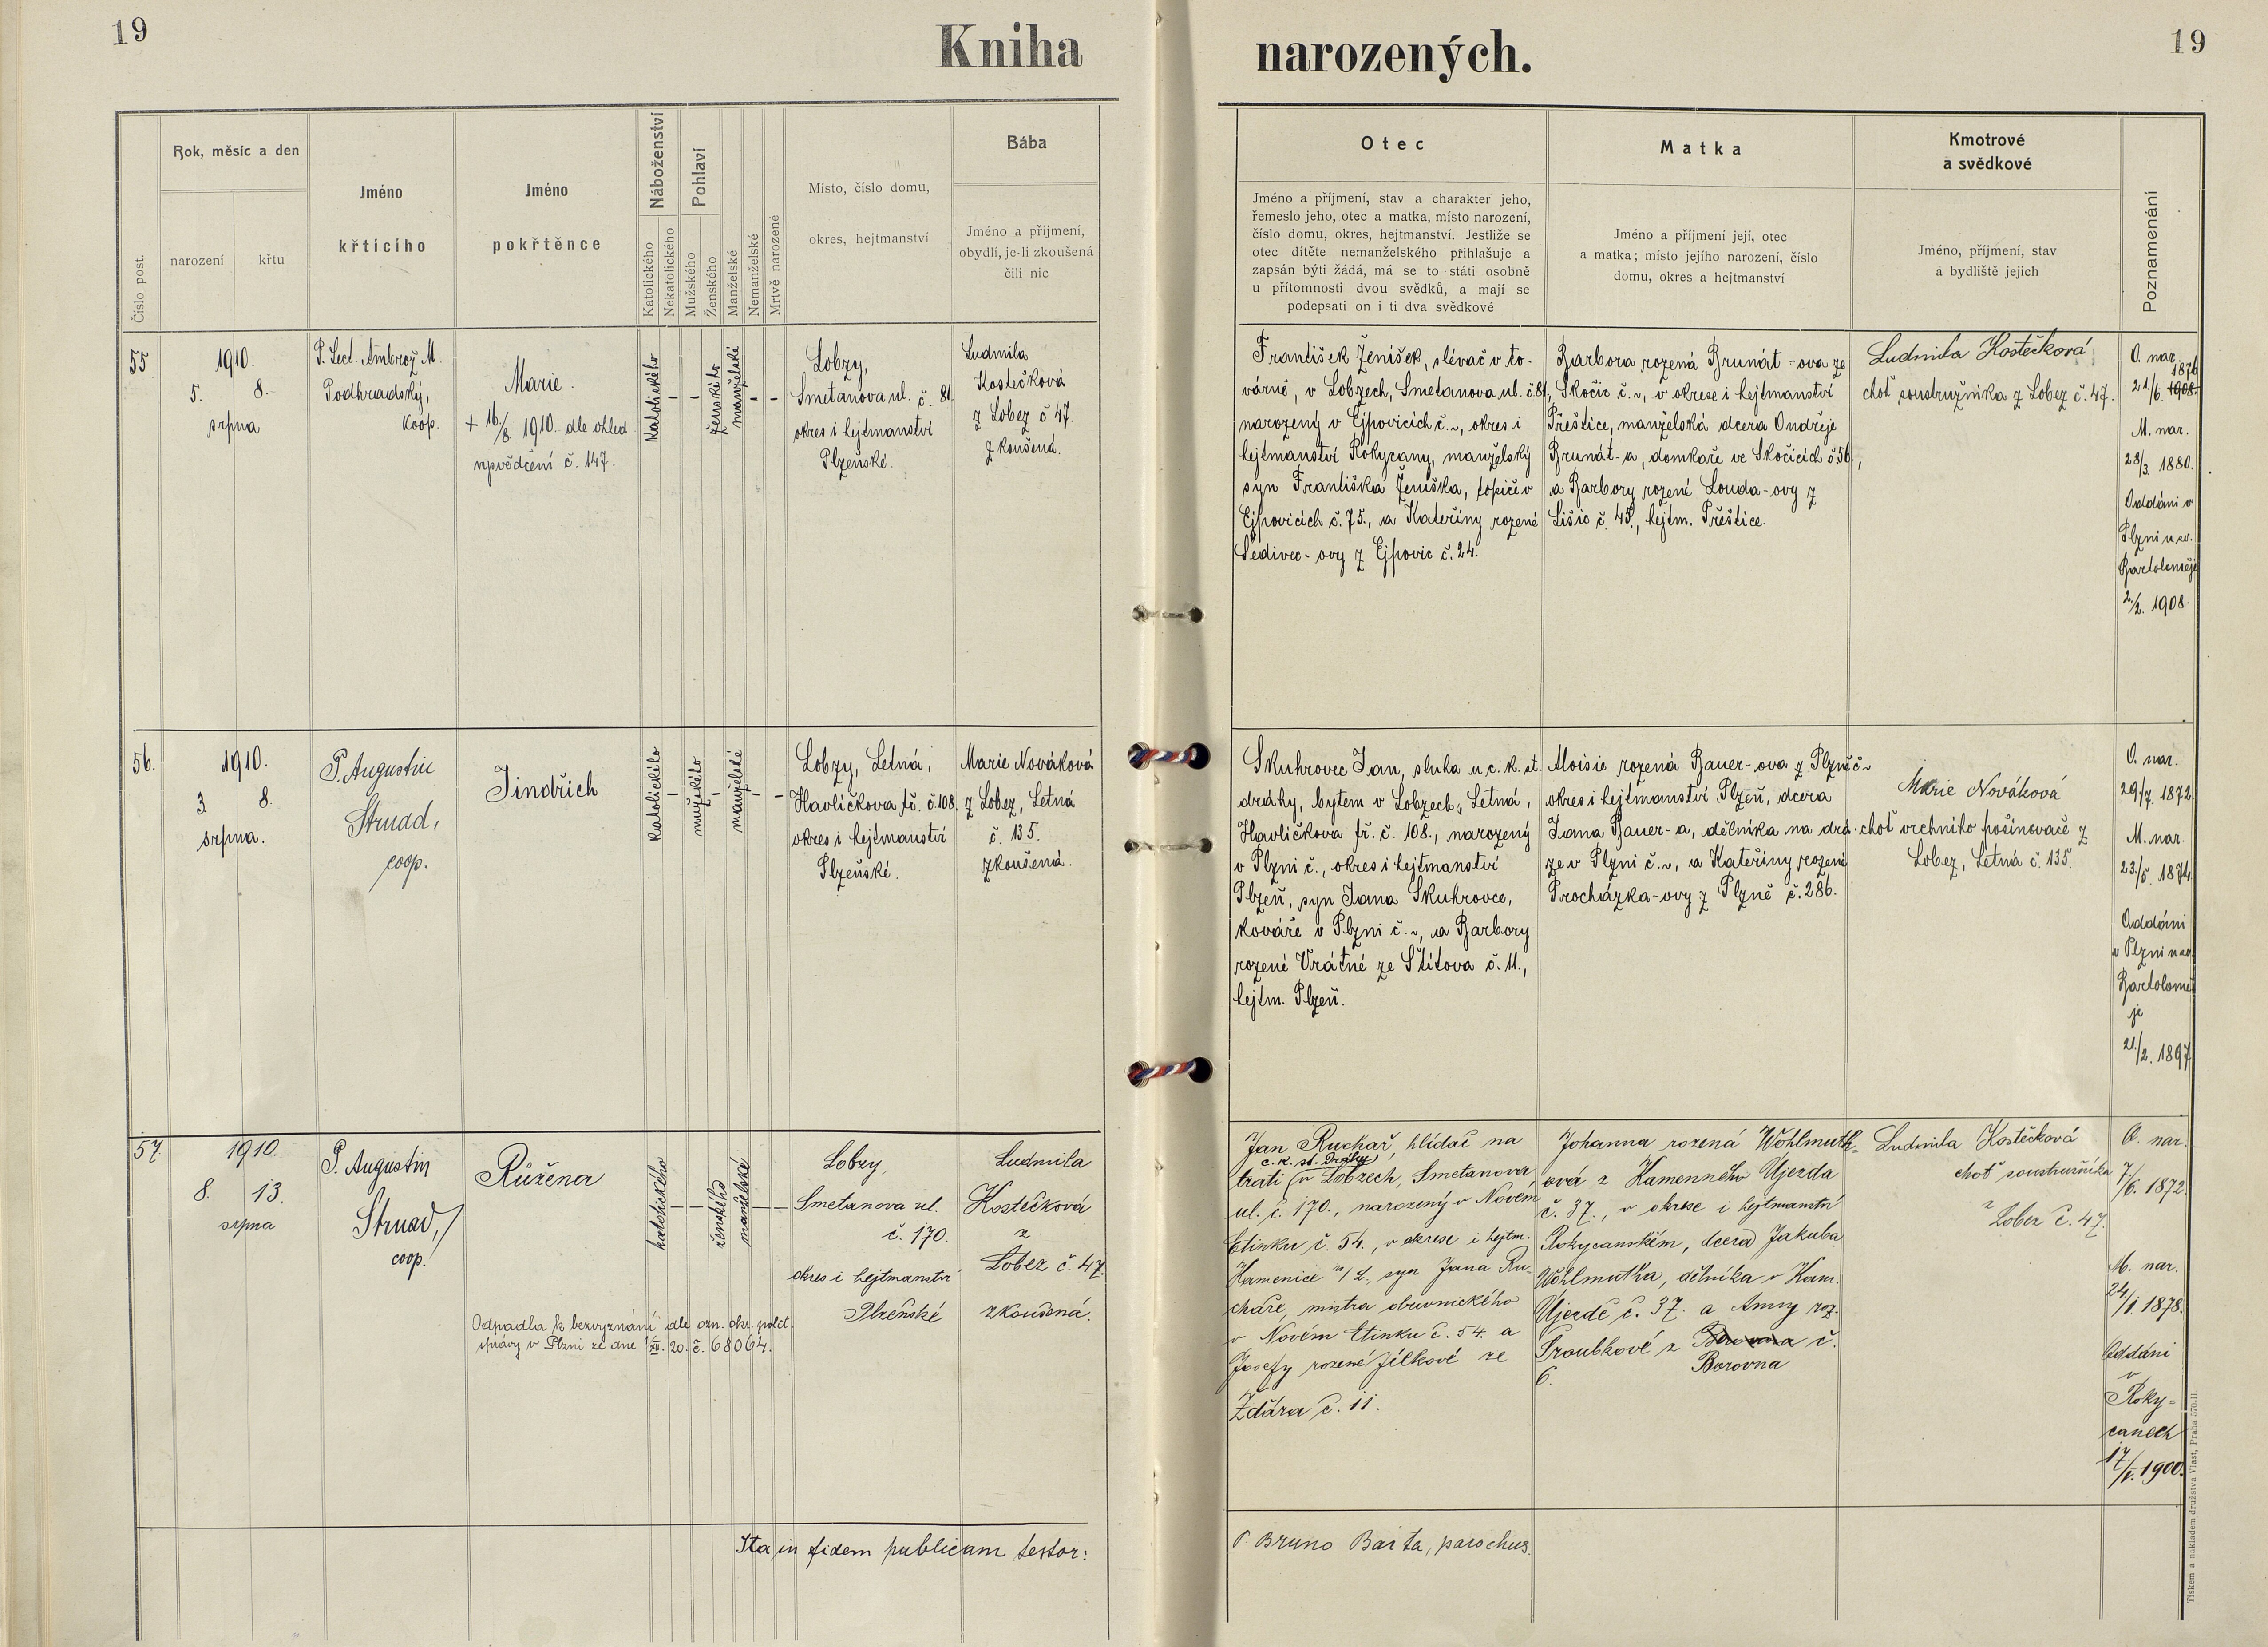 19
Kniha
narozených.
19
Číslo post.
Rok, měsíc a den
narození
křtu
Jméno
křtícího
Jméno
pokřtěnce
Náboženství
Katolického
Nekatolického
Pohlaví
Mužského
Ženského
Manželské
Nemanželské
Mrtvě narozené
Místo, číslo domu,
okres, hejtmanství
Bába
Jméno a příjmení,
obydlí, je-li zkoušená
čili nic
Otec
Jméno a příjmení, stav a charakter jeho,
řemeslo jeho, otec a matka, místo narození,
číslo domu, okres, hejtmanství. Jestliže se
otec dítěte nemanželského přihlašuje a
zapsán býti žádá, má se to státi osobně
u přítomnosti dvou svědků, a mají se
podepsati on i ti dva svědkové
Matka
Jméno a příjmení její, otec
a matka; místo jejího narození, číslo
domu, okres a hejtmanství
Kmotrové
a svědkové
Jméno, příjmení, stav
a bydliště jejich
Poznamenání
55
1910.
5. 8.
srpna
P. Lect. Ambrož M.
Podhradský,
koop.
Marie.
+ 16./8 1910. dle ohled.
vysvědčení č. 147.
Katolického
-
-
ženského
manželské
-
-
Lobzy,
Smetanova ul. č. 81.
okres i hejtmanství
Plzeňské.
Ludmila
Kostečková
z Lobez č 47.
zkoušená.
František Ženíšek, slévač v to-
várně, v Lobzech, Smetanova ul. č.81,
narozený v Ejpovicích č.~, okres i
hejtmanství Rokycany, manželský
syn Františka Ženíška, topiče v
Ejpovicích č. 75., a Kateřiny rozené
Šedivec-ovy z Ejpovic č. 24.
Barbora rozená Brunát-ova ze
Skočic č.~, v okrese i hejtmanství
Přeštice, manželská dcera Ondřeje
Brunát-a, domkaře ve Skočicích č.56.,
a Barbory rozené Louda-ovy z
Lišic č. 45., hejtm. Přeštice.
Ludmila Kostečková
choť soustružníka z Lobez č. 47.
O. nar.
1876
21/6. 1908.
M. nar.
28/3. 1880.
Oddáni v
Plzni u sv.
Bartoloměje
2./2. 1908.
56.
1910.
3 8.
srpna.
P. Augustin
Strnad,
coop.
Jindřich
katolického
-
mužského
-
manželské
-
-
Lobzy, Letná,
Havlíčkova tř. č.108.
okres i hejtmanství
Plzeňské.
Marie Nováková
z Lobez, Letná
č. 135.
zkoušená.
Skuhrovec Jan, sluha u c. k. st.
dráhy, bytem v Lobzech, Letná,
Havlíčkova tř. č. 108., narozený
v Plzni č., okres i hejtmanství
Plzeň, syn Jana Skuhrovce,
kováře v Plzni č.~, a Barbory
rozené Vrátné ze Štítova č. 11.,
hejtm. Plzeň.
Aloisie rozená Bauer-ova z Plzně č~
okres i hejtmanství Plzeň, dcera
Jana Bauer-a, dělníka na drá-
ze v Plzni č.~, a Kateřiny rozené
Procházka-ovy z Plzně č. 286.
Marie Nováková
choť vrchního pošinovače z
Lobez, Letná č. 135.
O. nar.
29./7. 1872.
M. nar.
23./5. 1874.
Oddáni
v Plzni u sv.
Bartolomě
je
21./2. 1897.
57.
1910.
8. 13.
srpna
P. Augustin
Strnad,
coop.
Růžena
Odpadla k bezvyznání dle ozn. okr. polit.
správy v Plzni ze dne 1/XII. 20. č. 68064.
katolického
-
-
ženského
manželské
-
-
Lobzy,
Smetanova ul.
č. 170.
okres i hejtmanství
Plzeňské
Ludmila
Kostečková
z
Lobez č. 47.
zkoušená.
Jan Ruchař, hlídač na
c. k. st. Dráhy,
trati v Lobzech, Smetanova
ul. č. 170., narozený v Novém
Etinku č. 54., v okrese i hejtm.
Kamenice n/L, syn Jana Ru-
chaře, mistra obuvnického
v Novém Etinku č. 54. a
Josefy rozené Jílkové ze
Žďára č. 11.
Johanna rozená Wohlmuth-
ová z Kamenného Újezda
č. 37., v okrese i hejtmanství
Rokycanském, dcera Jakuba
Wohlmutha, dělníka v Kam.
Újezdě č. 37. a Anny roz.
Sroubkové z č.
Borovna
6.
Ludmila Kostečková
choť soustružníka
z
Lobez č. 47.
O. nar.
7/6. 1872.
M. nar.
24/1. 1878.
Oddáni
v
Roky-
canech
17./1. 1900.
Ita in fidem publicam testor:
P. Bruno Barta, parochus.
Tiskem a nákladem družstva Vlast, Praha 570-II.